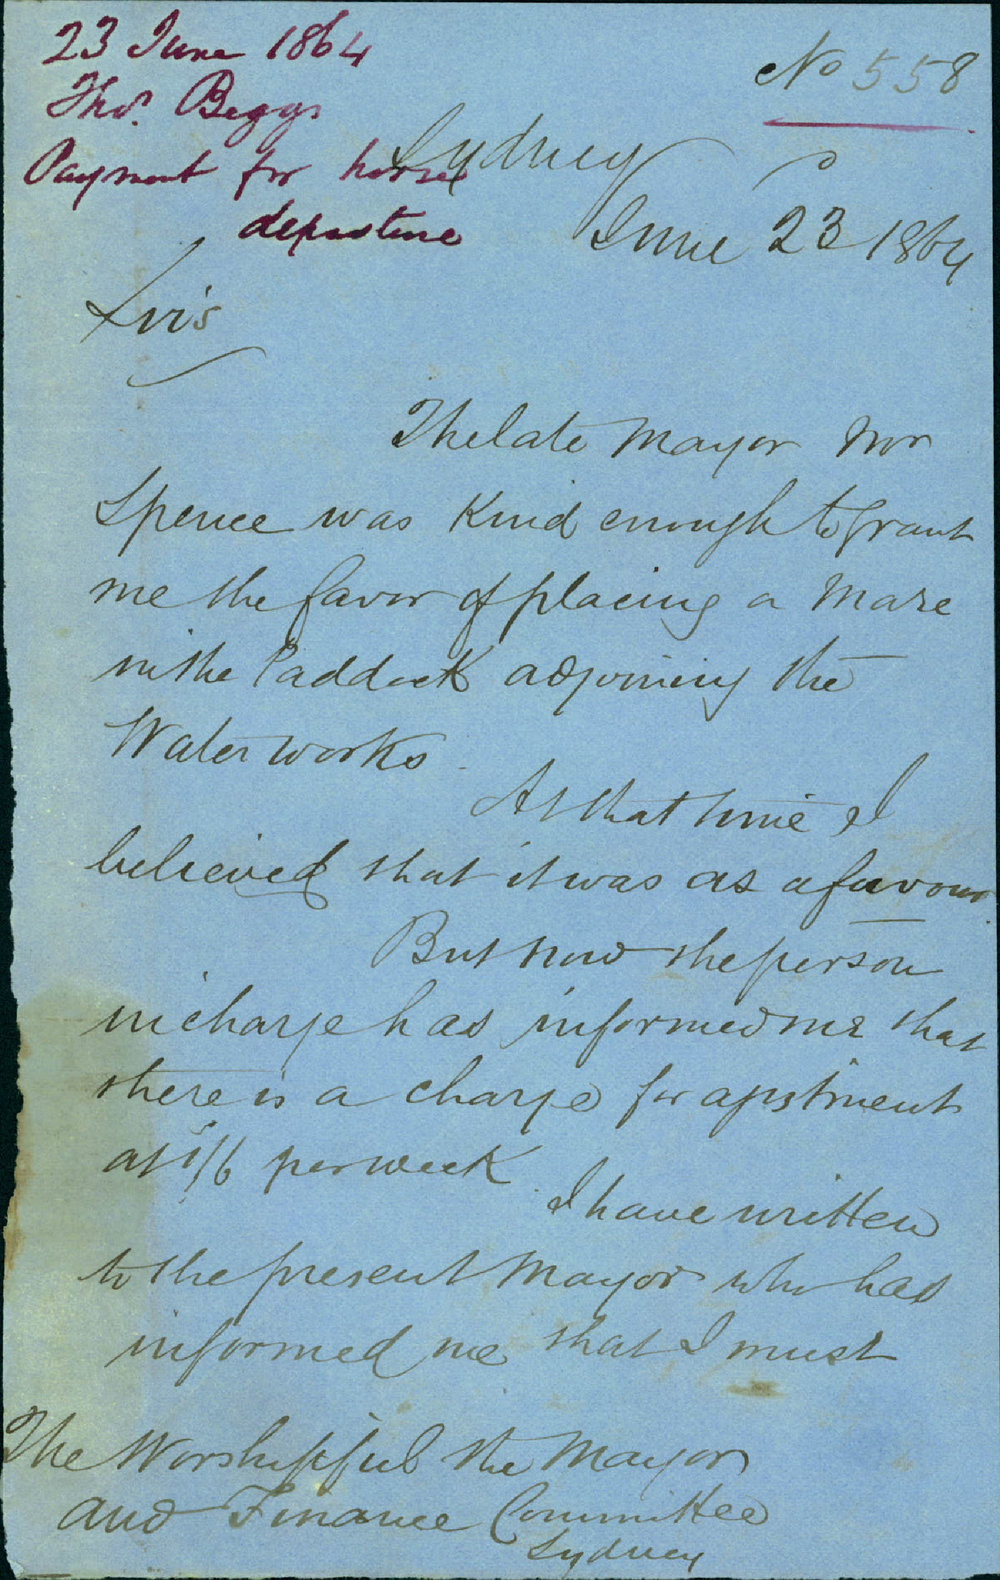 23 June 1864
Thos. Beggs
Payment for horse
depasture
No 558
Sydney
June 23 1864
Sirs
The late Mayor Mr
Spence was Kind enough to grant
me the favor of placing a Mare
in the Paddock adjoining the
Water works.
At that time I
believed that it was as a favour.
But now the person
in charge has informed me that
there is a charge for
at 1/6 per week
I have written
to the present Mayor who has
informed me that I must
The Worshipful the Mayor
and Finance Committee
Sydney